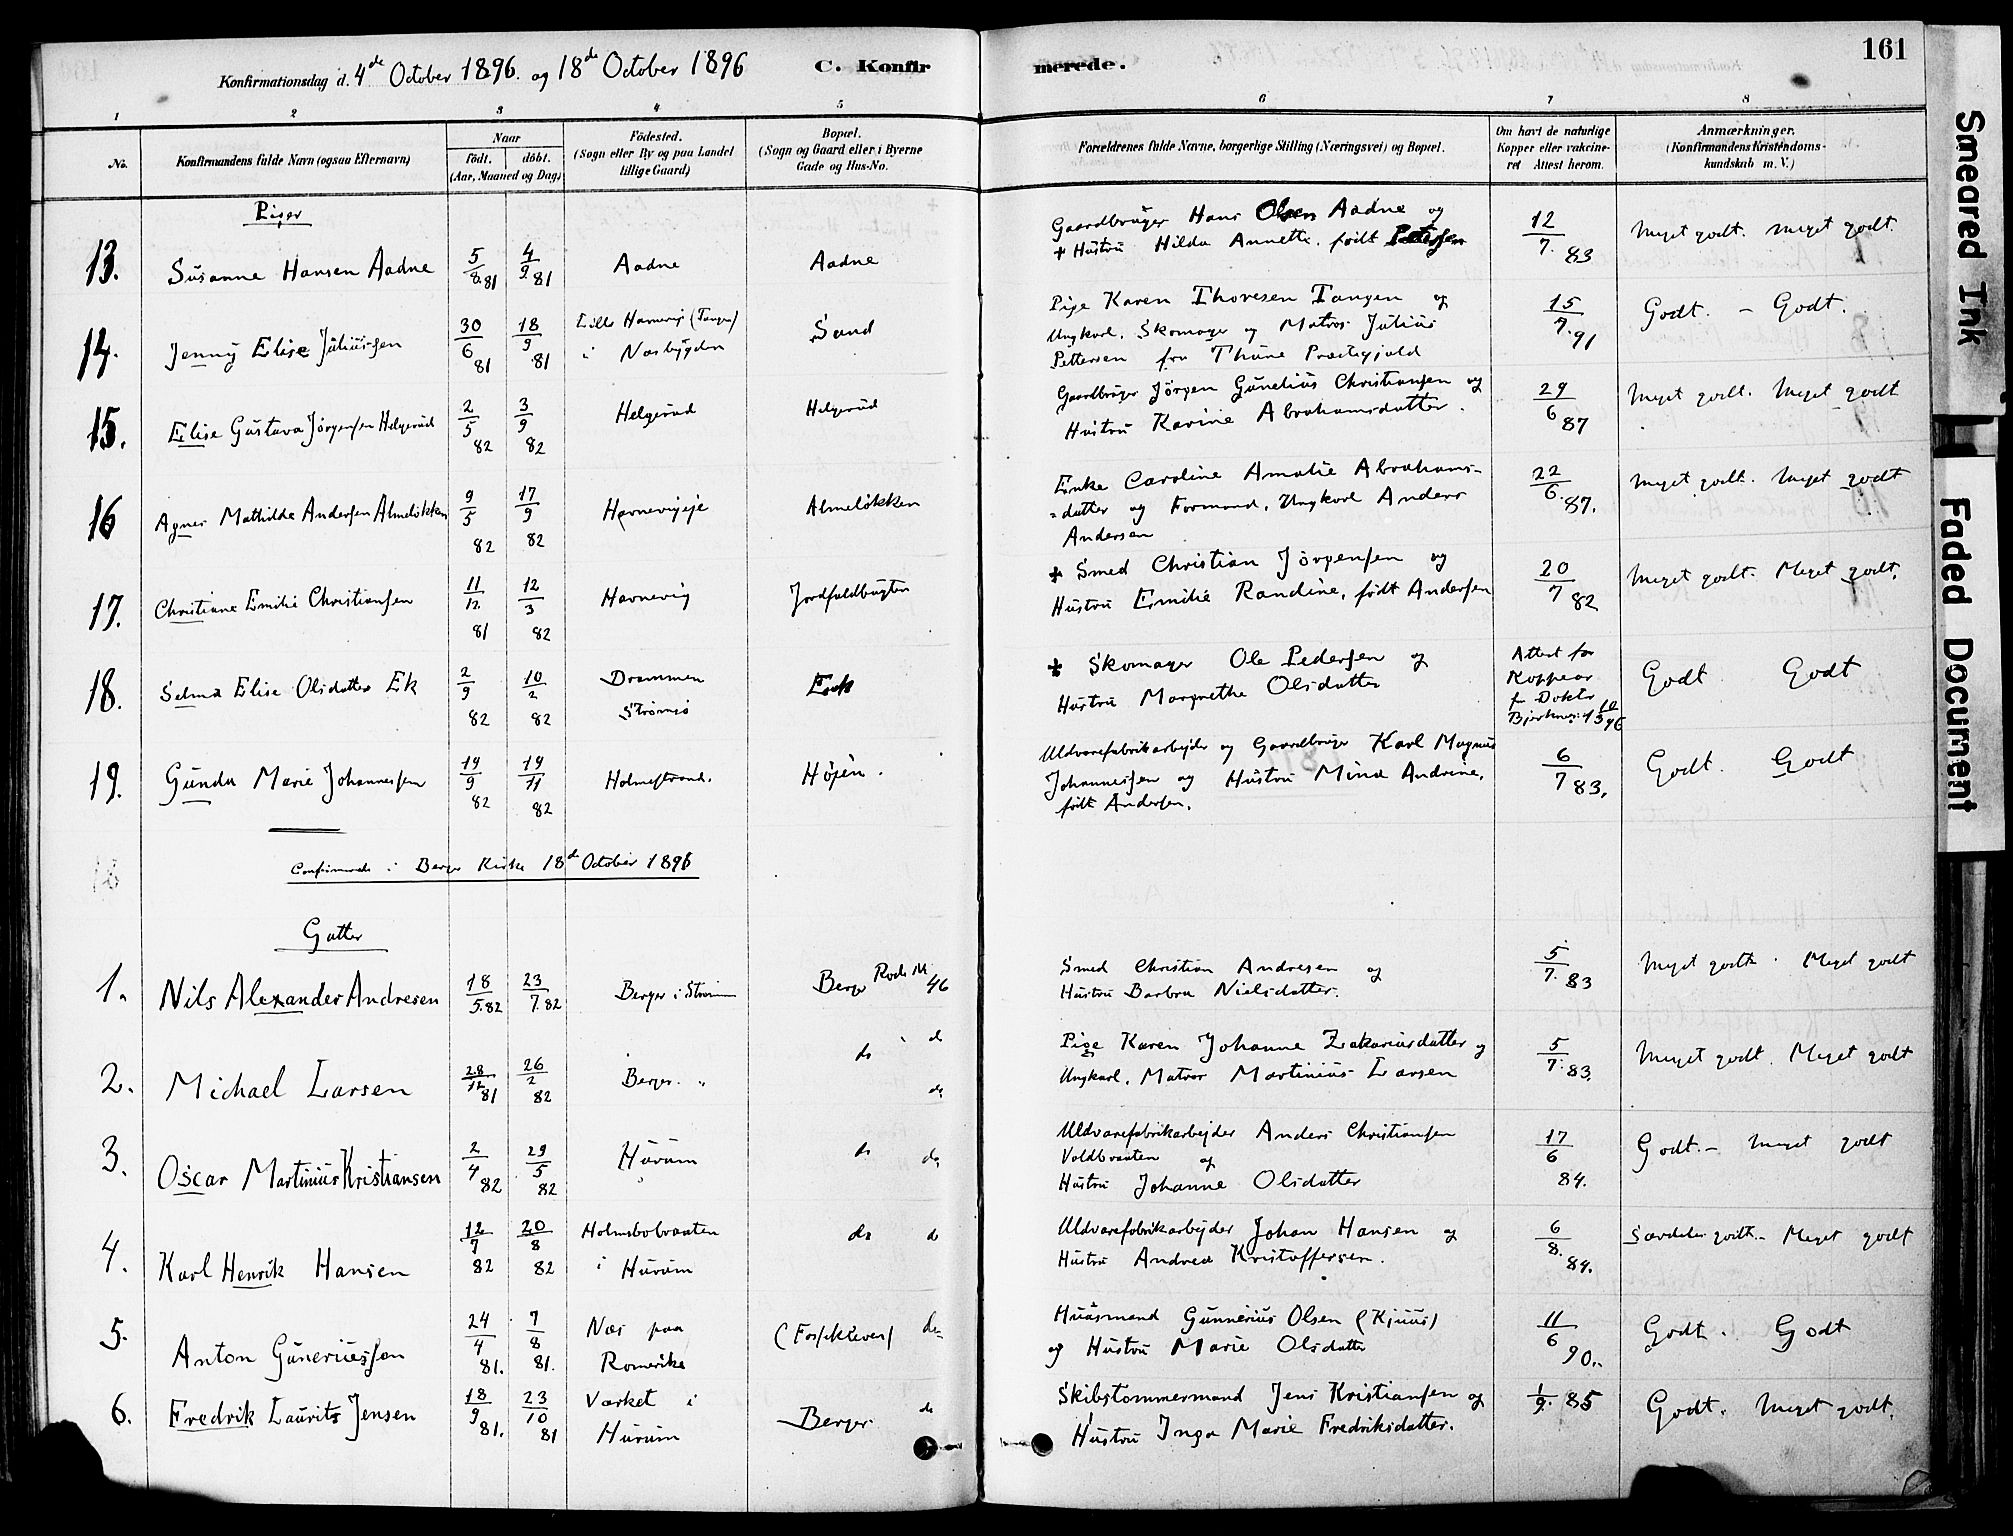 161
Konfirmationsdag d. 4de October 1896. og 18de October 1896
C. Konfirmerede.
1 2 3 4 5 6 7 8
No.
Konfirmandens fulde Navn (ogsaa Efternavn)
Naar
födt. döbt.
(Aar, Maaned og Dag)
Födested.
(Sogn eller By og paa Landet
tillige Gaard)
Bopæl.
(Sogn og Gaard eller i Byerne
Gade og Hus-No.
Forældrenes fulde Navne, borgerlige Stilling (Næringsvei) og Bopæl.
Om havt de naturlige
Kopper eller vakcine-
ret Attest herom.
Anmærkninger.
(Konfirmandens Kristendoms-
kundskab m. V.)
Piger
13. Susanne Hansen Aadne 5/8 81 4/9 81 Aadne Aadne
Gaardbruger Hans Olsen Aadne og
+ Hustru Hilda Annette, født Petersen
12/7 83 Meget godt. meget godt.
14. Jenny Elise Juliussen 30/6 81 18/9 81 Lille Havnevig (Tangen)
i Næsbygden Sand
Pige Karen Thoresen Tangen og
Ungkarl, Skomager og Matros Julius
Pettersen fra Thune Præstegjæld
15/7 91 Godt. - Godt.
15. Elise Gustava Jörgensen Helgerud 2/5 82 3/9 82 Helgerud Helgerud
Gaardbruger Jörgen Gunelius Christiansen og
Hustru Karine Abrahamsdatter.
29/6 87 Meget godt. Meget godt
16 Agnes Mathilde Andersen Almelökken 9/5 82 17/9 82 Havnevigeje Almelökken
Enke Caroline Amalie Abrahams-
-datter og Formand, Ungkarl Anders
Andersen
22/6. 87. Meget godt. Meget godt
17. Christiane Emilie Christiansen 11/12 81 12/3 82 Havnevig Jordfaldbugten
+ Smed Christian Jörgensen og
Hustru Emilie Randine, født Andersen
20/7 82 Meget godt. Meget godt.
18. Selma Elise Olsdatter Ek 2/9 82 10/2 82 Drammen
Strömsö Eek
+ Skomager Ole Pedersen og
Hustru Margrethe Olsdatter
Attest for
Koppear
fr Doktr
Godt Godt
19. Gunda Marie Johannessen 19/9 82 19/11 82 Holmestrand. Höjen.
Uldvarefabrikarbejder og Gaardbruger Karl Magnus
Johannessen og Hustru Mina Andrine,
født Andersen.
6/7 83. Godt. Godt
Confirmerede i Berger Kirke 18de October 1896
Gutter
1. Nils Alexander Andresen 18/5 82 23/7 82 Berger i Strømm Berger Rode M 46
Smed Christian Andresen og
Hustru Barbra Nielsdatter.
5/7. 83 Meget godt. Meget godt
2. Michael Larsen 28/12 81 26/2 82 Berger. " do do
do
Pige Karen Johanne Zakariasdatter og
Ungkarl, Matros Martinius Larsen
5/7. 83. Meget godt. Meget godt
3. Oscar Martinius Kristiansen 2/4 82 29/5 82 Hurum do do
Uldvarefabrikarbejder Anders Christiansen
Valdbraaten og
Hustru Johanne Olsdatter
17/6 84. Godt.- Meget godt
4. Karl Henrik Hansen 12/7 82 20/8 82 Holmsbobraaten
i Hurum do do
Uldvarefabrikarbejder Johan Hansen og
Hustru Andrea Kristoffersen.
6/8. 84. Særdeles godt.- Meget godt
5. Anton Guneriussen 24/4 81. 7/8 81. Næs paa
Romerike do
Huusmand Gunnerius Olsen (Kjuus)
og Hustru Marie Olsdatter
11/6 90.. Godt. Godt
6. Fredrik Laurits Jensen 18/9 81. 23/10 81 Værket i
Hurum Berger. do
Skibstømmermand Jens Kristiansen og
Hustru Inga Marie Fredriksdatter.
1/9. 85 Godt. Meget godt.
Smeared Ink
Faded Document